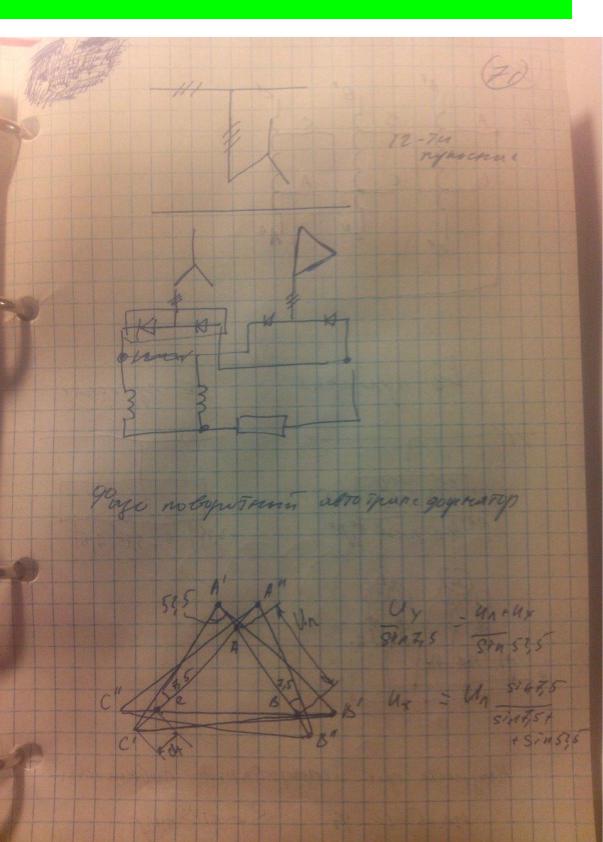 70
12-ти
пульсная
Фазо поворотный автотрансформатор
A' A"
52,5
Uл
A
7,5 7,5
C" C B B'
C' B"
Ux
Ux / sin7,5 = Uл+Ux / sin52,5
Ux = Uл sin7,5 / sin7,5+
+sin52,5